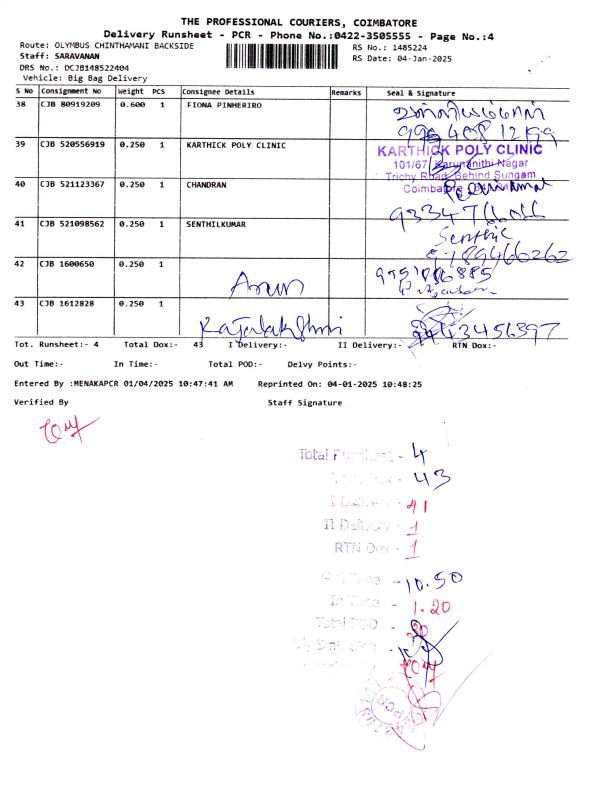 THE PROFESSIONAL COURIERS, COIMBATORE
Delivery Runsheet - PCR - Phone No.:0422-3505555 - Page No.:4
Route: OLYMBUS CHINTHAMANI BACKSIDE
RS No.: 1485224
Staff: SARAVANAN
RS Date: 04-Jan-2025
DRS No.: DCJB148522404
Vehicle: Big Bag Delivery
S No Consignment No Weight PCS Consignee Details Remarks Seal & Signature
38 CJB 80919209 0.600 1 FIONA PINHERIRO
39 CJB 520556919 0.250 1 KARTHICK POLY CLINIC
KARTHICK POLY CLINIC
101/67, Karunanithi Nagar
Trichy Road, Behind Sungam
40 CJB 521123367 0.250 1 CHANDRAN
41 CJB 521098562 0.250 1 SENTHILKUMAR
Senthil
9789466262
42 CJB 1600650 0.250 1
Arun
43 CJB 1612828 0.250 1
Rajalakshmi
Tot. Runsheet:- 4 Total Dox:- 43 I Delivery:- II Delivery:- RTN Dox:-
Out Time:- In Time:- Total POD:- Delvy Points:-
Entered By :MENAKAPCR 01/04/2025 10:47:41 AM Reprinted On: 04-01-2025 10:48:25
Verified By Staff Signature
Total Runsheet - 4
43
I Delivery - 41
II Delivery - 1
RTN Dox - 1
Out Time - 10.50
In Time - 1.20
Total POD -